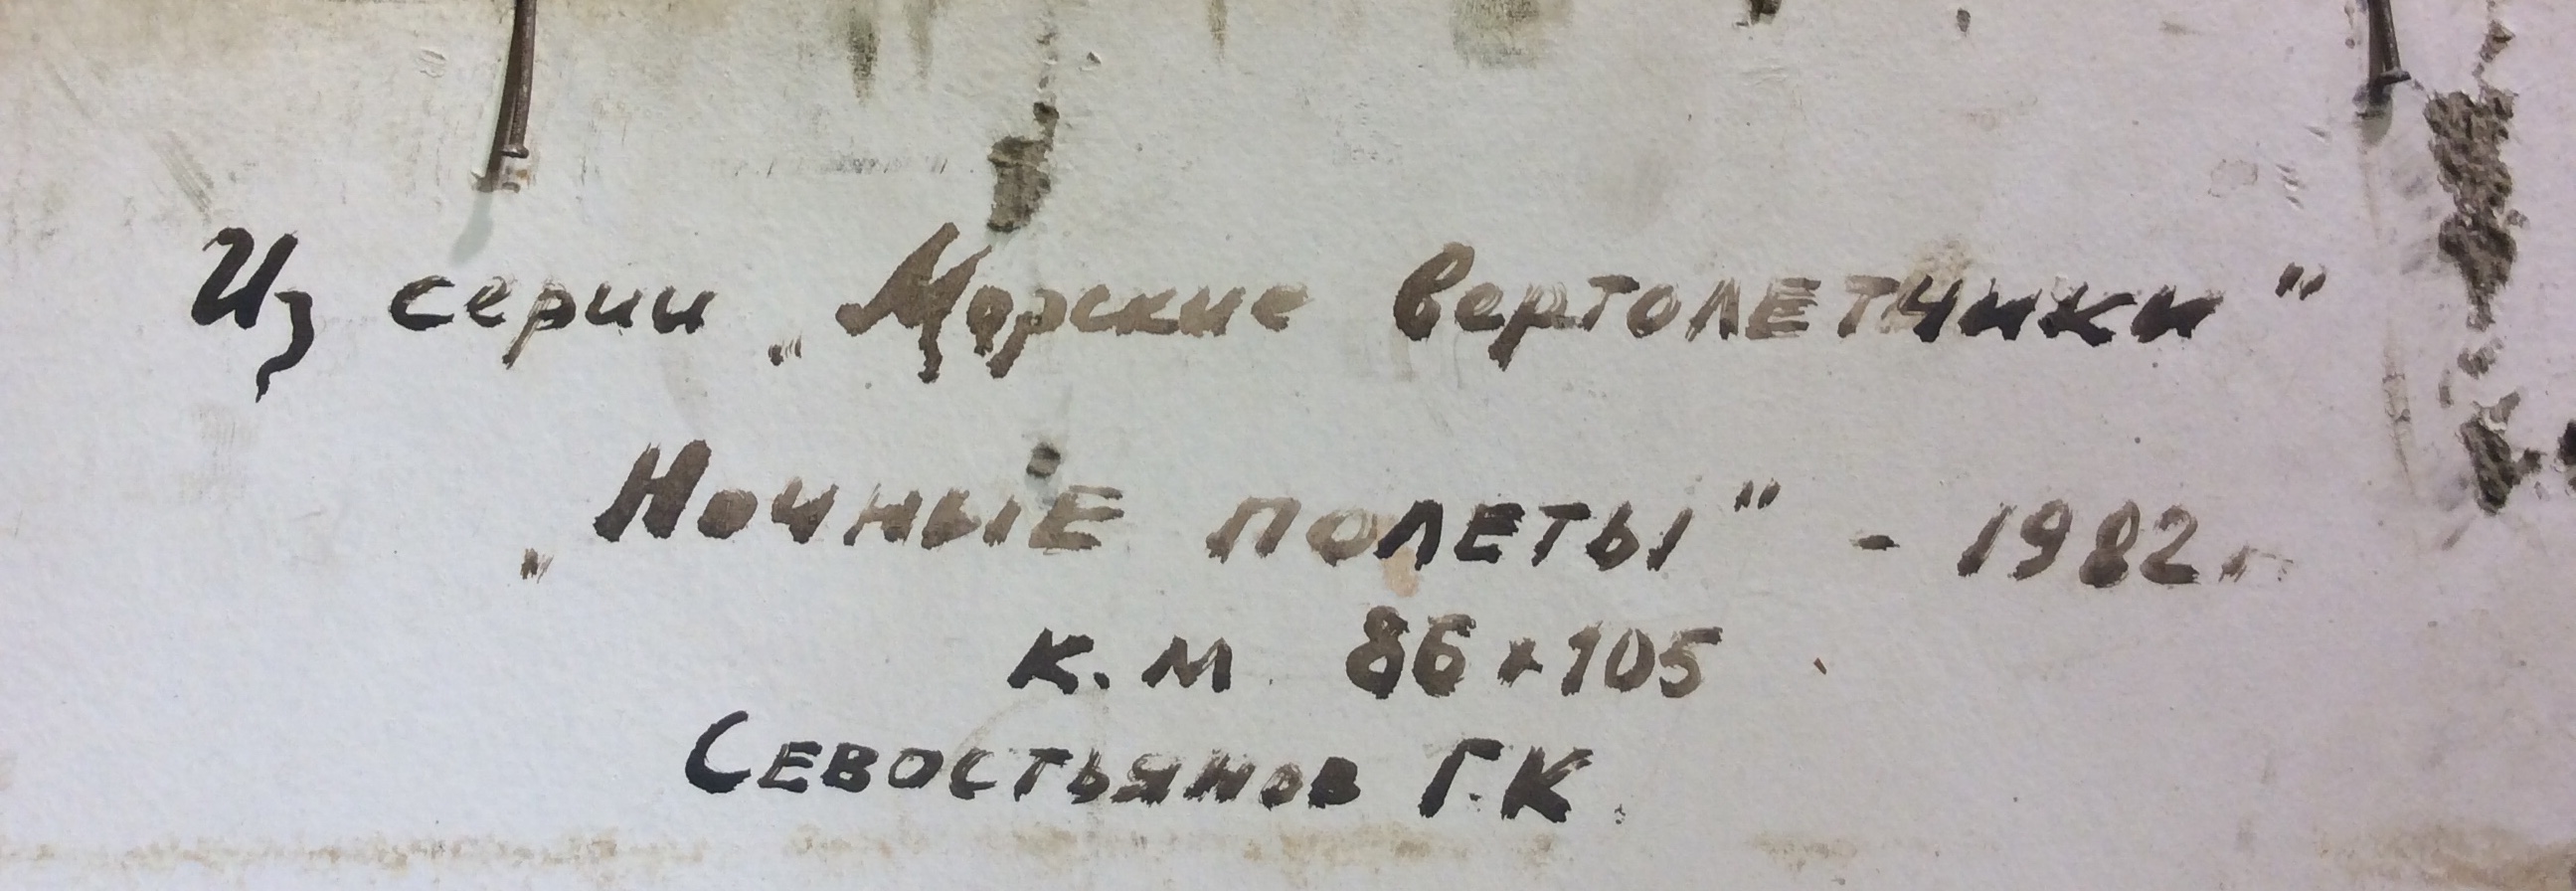 Из серии „Морские вертолетчики"
„Ночные полеты" - 1982 г
к.м 86×105
Севостьянов Г.К.